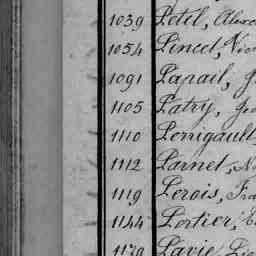 1039 Petel, Alexa
1054 Pincet, Vic
1091 Papail, J
1105 Patry, Jo
1110 Perrigault
1112 Parnet, N
1119 Perois, Fra
1144 Portier, E
1179 Pavie